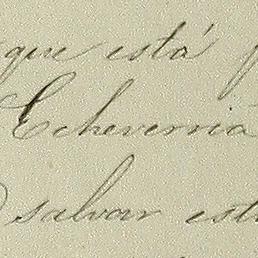 que está
Echeverria
salvar est